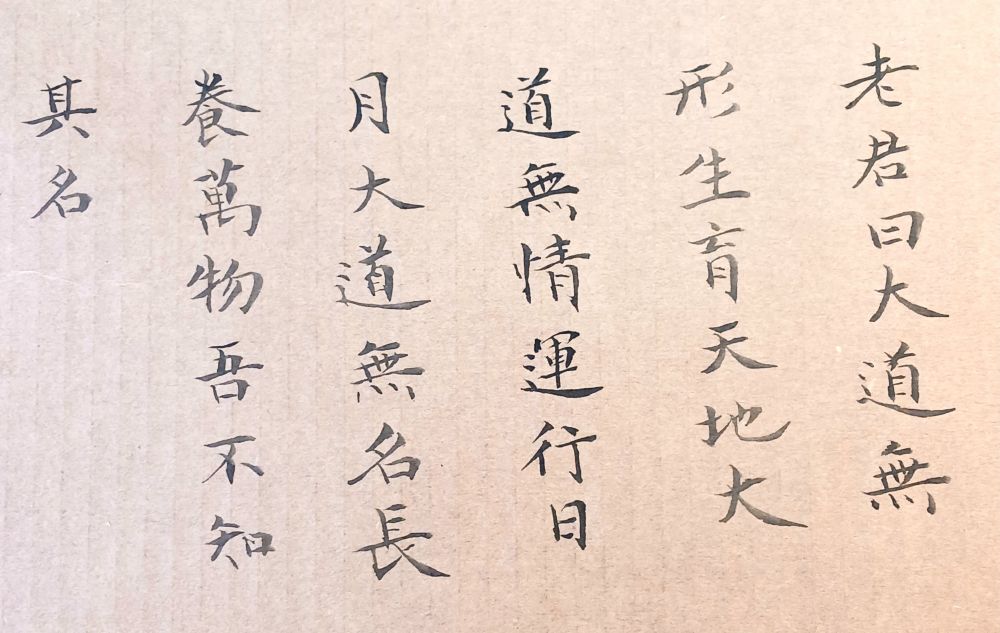 老君曰大道無
形生育天地大
道無情運行日
月大道無名長
養萬物吾不知
其名